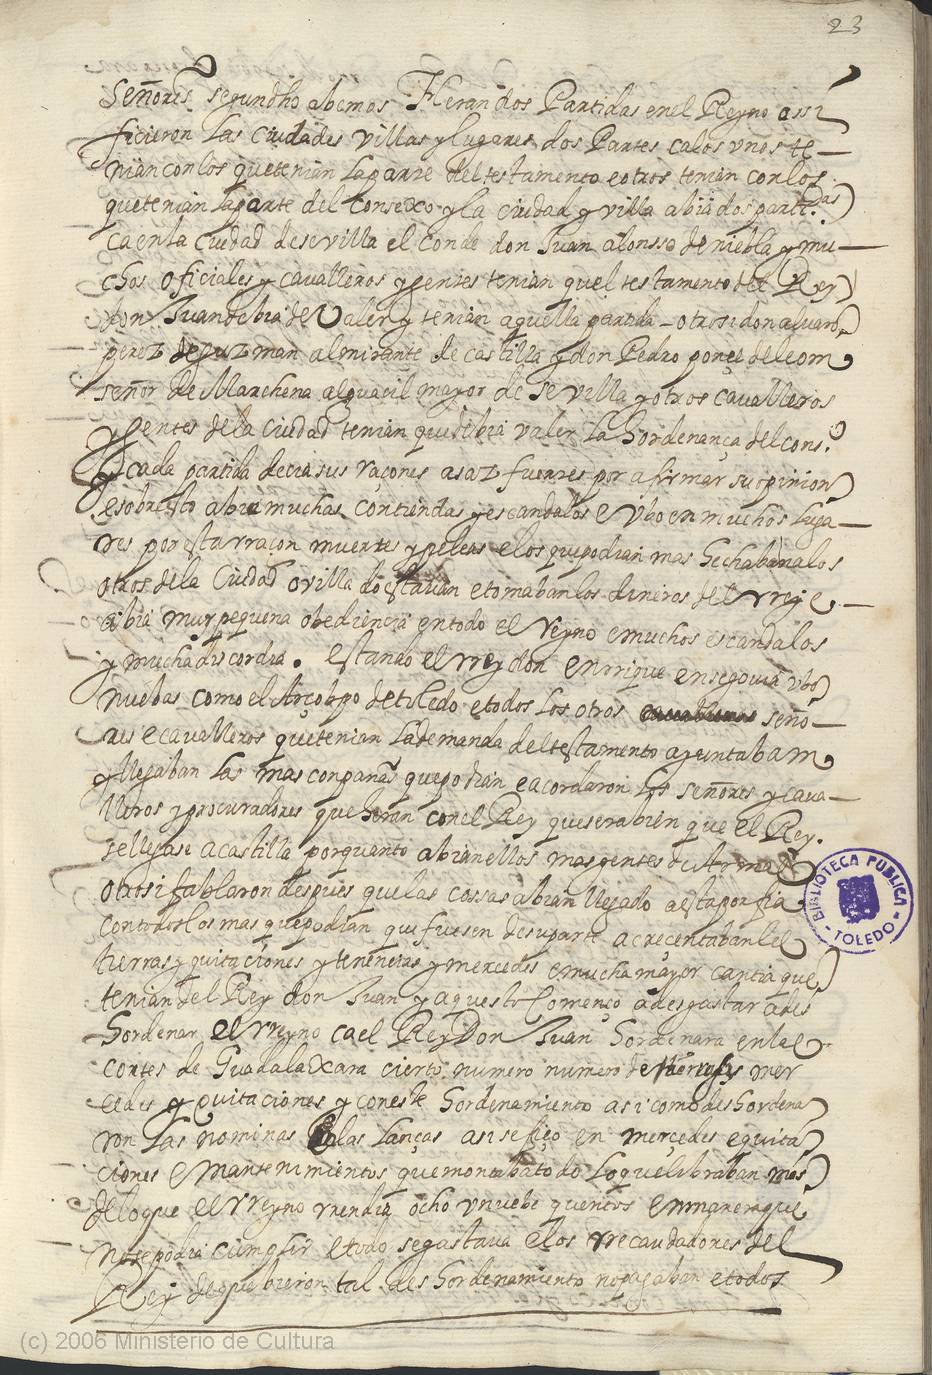 23
Señores segundho abemos Heran dos Partidas en el Reyno assi
ficieron las ciudades villas y lugares dos Partes ca los unos te-
nian con los que tenian la parte del testamento e otros tenian con los
que tenian la parte del Consexo y la ciudad y villa abia dos parti.das
ca en la ciudad de sevilla el conde don Juan alonsso de niebla y mu-
chos oficiales y cavalleros y gentes tenian quel testamento del Rey
don Juan debia de Valer y tenian aquella partida - otrosi don alvaro
perez de guzman almirante de castilla y don Pedro ponçe de leom
señor de Marchena alguacil mayor de Sevilla y otros cavalleros
y gentes de la ciudad tenian que debia valer la hordenança del cons.o
y cada partida decia sus raçones asaz fuertes por afirmar su opinion
e sobresto abia muchas contiendas y escandalos e Vbo en muchos luga-
res por esta rraçon muertes y peleas e los que podian mas hechaban a los
otros de la Ciudad o villa do estavan e tomaban los dineros del rrey e-
abia muy pequena obediencia en todo el Reyno e muchos escandalos
y mucha discordia. estando el rrey don enrrique en segovia vbo
nuebas como el Arçobpo de tledo e todos los otros seño-
res e cavalleros que tenian la demanda del testamento ajuntabam
y llegaban las mas conpañas que podian e acordaron los señores y cava-
lleros y procuradores que heran con el Rey que sera bien que el Rey.
se llegase a castilla por quanto abian ellos mas gentes de Armas
otrosi fablaron despues que las cossas abian llegado a esta porfia
con todos los mas que podian que fuesen de su parte acrecentabanles
tierras y quitaciones y tenencias y mercedes e mucha mayor cantia que
tenian del Rey don Juan y aquesto Començo a desgastar a des
hordenar el rreyno ca el Rey Don Juan hordenara en las
cortes de Guadalaxara cierto numero numero de mer
cedes y quitaciones y con este hordenamiento asi como deshordena
ron las nominas las lanças asi se fiço en mercedes e quita
ciones e mantenimientos que montaba todo lo que libraban mas
de lo que el rreyno rrendia ocho v nuebe quentos en manera que
no se podia cumplir e todo se gastava e los rrecaudadores del
Rey desque bieron tal deshordenamiento no pagaban e todos
BIBLIOTECA PÚBLICA
- TOLEDO -
(c) 2006 Ministerio de Cultura